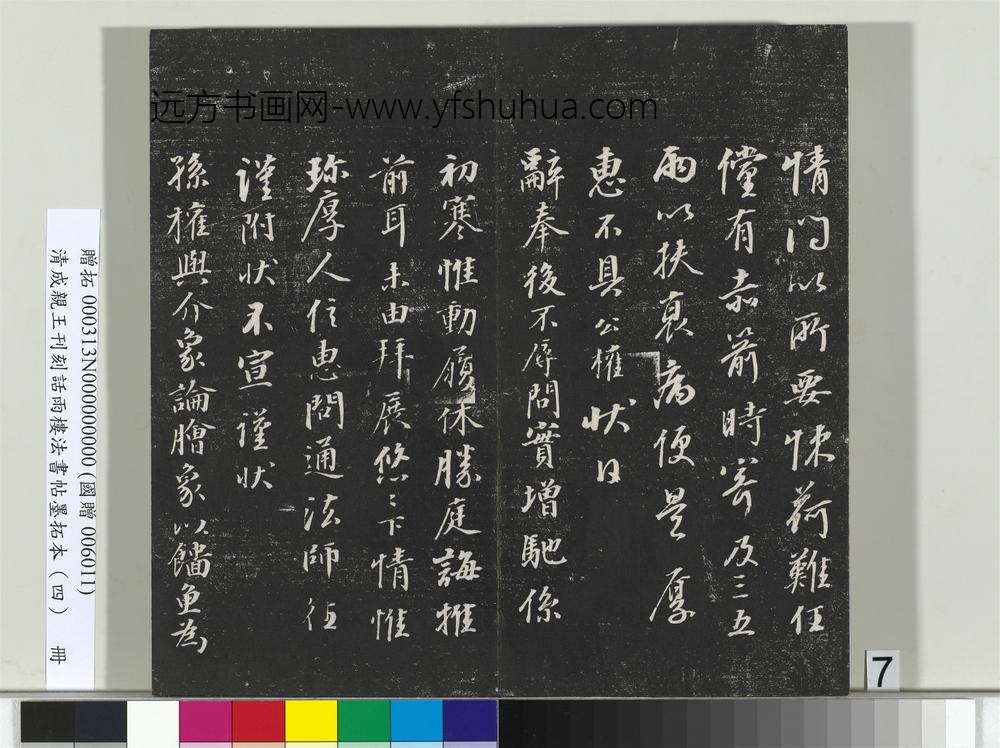 情問以所要悚荷難任
儻有赤箭時寄及三五
兩以扶衰病便是厚
惠不具公權狀日
辭奉後不辱問實增馳係
初寒惟動履休勝庭誨惟
前耳未由拜展悠々下情惟
珎厚人信惠問通法師徃
謹附狀不宣謹狀
孫權與介象論膾象以鯔魚為
远方书画网-www.yfshuhua.com
贈拓 000313N000000000 (國贈 006011)
清成親王刊刻話雨樓法書帖墨拓本（四） 冊
7